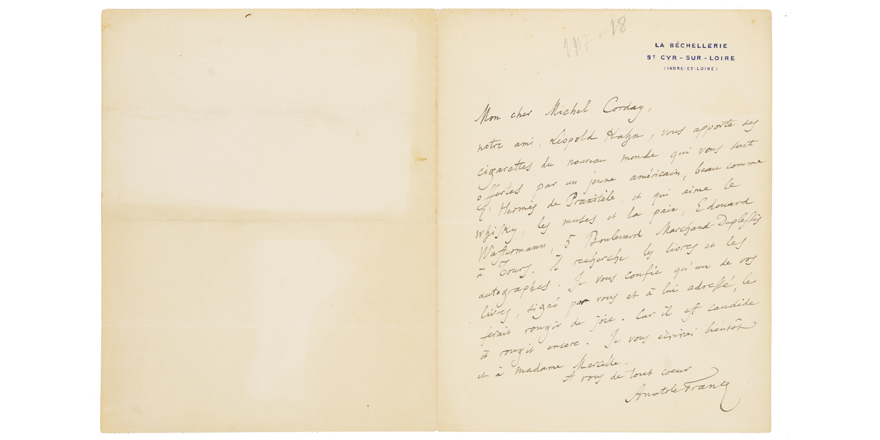 1917-18
LA BÉCHELLERIE
ST CYR-SUR-LOIRE
(INDRE-ET-LOIRE)
Mon cher Michel Corday,
notre ami, Léopold Kahn, vous apporte des
cigarettes du nouveau monde qui vous sont
offertes par un jeune américain, beau comme
l'Hermès de Praxitèle et qui aime le
whisky, les muses et la paix, Edouard
Wassermann, 5 Boulevard Marchand Duplessis
à Tours. Il recherche les livres et les
autographes. Je vous confie qu'un de vos
livres, signé par vous et à lui adressé, le
ferait rougir de joie. Car il est candide
et rougit encore. Je vous écrirai bientôt
et à madame
A vous de tout coeur
Anatole France